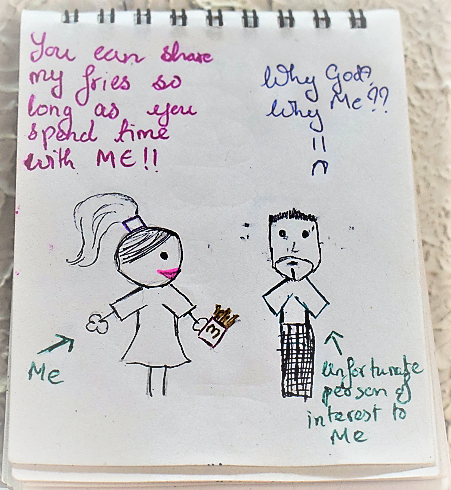 You can share
my fries so
long as you
spend time
with ME!!
Why God?
Why Me??
Me
unfortunate
person of
interest to
Me